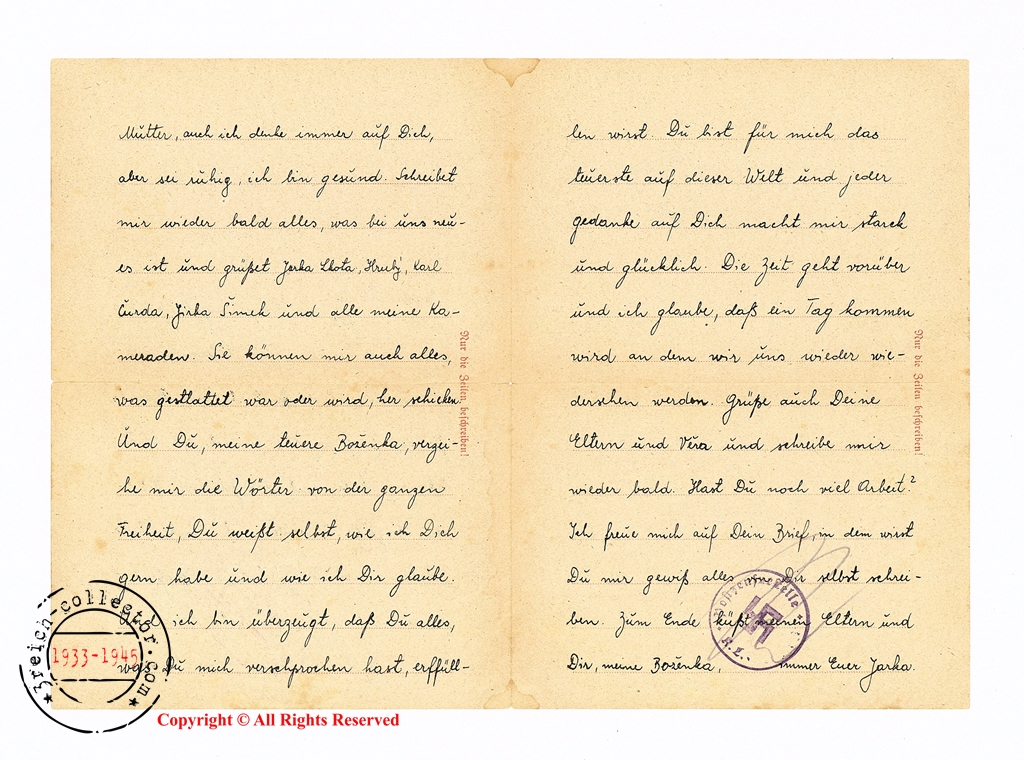 Mutter, auch ich denke immer auf Dich,
aber sei ruhig, ich bin gesund. Schreibet
mir wieder bald alles, was bei uns neu-
es ist und grüßet Jarka Skota, Hrubý, Karl
Čurda, Jirka Šimek und alle meine Ka-
meraden. Sie können mir auch alles,
was gestlattet war oder wird, her schicken.
Und Du, meine teuere Boženka, verzei-
he mir die Wörter von der ganzen
Freiheit, Du weißt selbst, wie ich Dich
gern habe und wie ich Dir glaube.
ich bin überzeugt, daß Du alles,
Du mich verschprochen hast, erffüll-
Nur die Zeilen beschreiben!
len wirst. Du bist für mich das
teuerste auf dieser Welt und jeder
gedanke auf Dich macht mir starck
und glücklich. Die Zeit geht vorüber
und ich glaube, daß ein Tag kommen
wird an dem wir uns wieder wie-
dersehen werden. Grüße auch Deine
Eltern und Věra und schreibe mir
wieder bald. Hast Du noch viel Arbeit?
Ich freue mich auf Dein Brief, in dem wirst
Du mir gewiß alles Dir selbst schrei-
ben. Zum Ende küßt meinen Eltern und
Dir, meine Boženka, immer Euer Jarka.
Nur die Zeilen beschreiben!
Postzensurstelle
K.L.
3reich-collector.com
1933-1945
Copyright © All Rights Reserved